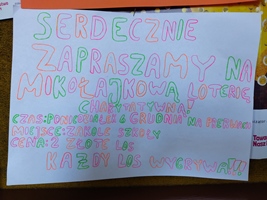 SERDECZNIE
ZAPRASZAMY NA
MIKOŁAJKOWĄ LOTERIĘ
CHARYTATYWNĄ!
CZAS: PONIEDZIAŁEK 6 GRUDNIA NA PRZERWACH
MIEJSCE: ZAKOLE SZKOŁY
CENA: 2 ZŁOTE LOS
KAŻDY LOS WYGRYWA!!!